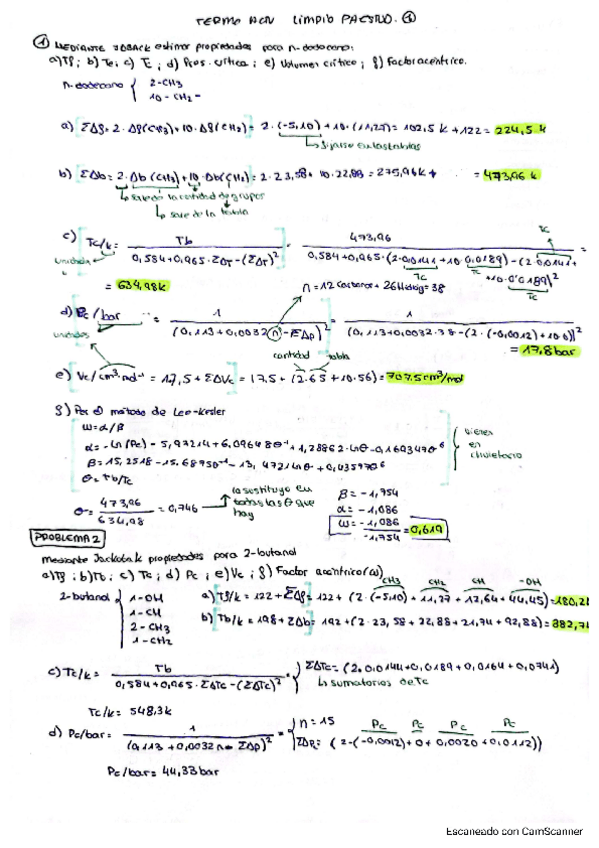 TERMO ACN LIMPIO PACENO. ①
① MEDIANTE JOBACK estimar propiedades para n-dodecano:
a) Tf; b) Te; c) Tc, d) Pres. crítica; e) Volumen crítico; f) Factor acéntrico.
n-dodecano { 2-CH3
10-CH2-
a) ΣΔf = 2·Δf(CH3)+10·Δf(CH2) = 2·(-5,10)+10·(11,27) = 102,5 k +122 = 224,5 k
↳ fijarse en las tablas
b) ΣΔb = 2·Δb(CH3)+10·Δb(CH2) = 2·23,58+10·22,88 = 275,96 k + = 473,96 k
↳ sale de la cantidad de grupos
↳ sale de la tabla
c) Tc/k = Tb / 0,584+0,965·ΣΔT-(ΣΔT)² = 473,96 / 0,584+0,965·(2·0,0141+10·0,0189)-(2·0,0141+10·0,0189)² =
unidades
= 634,98k
n = 12 carbonos + 26 Hidróg = 38
d) Pc/bar = 1 / (0,113+0,0032 n - ΣΔp)² = 1 / (0,113+0,0032·38-(2·(-0,0012)+10·0))² = 17,8 bar
unidades
cantidad tabla
e) Vc/cm³·mol⁻¹ = 17,5 + ΣΔVc = 17,5 + (2·65 + 10·56) = 707,5 cm³/mol
f) Por el método de Lee-Kesler
ω = α/β
α = -ln(Pc) - 5,97214 + 6,09648 θ⁻¹ + 1,28862 lnθ - 0,169347 θ⁶
β = 15,2518 - 15,6875 θ⁻¹ - 13,4721 lnθ + 0,43577 θ⁶
θ = Tb/Tc
vienen en chuletario
θ = 473,96 / 634,98 = 0,746 → lo sustituyo en todas las θ que hay
β = -1,754
α = -1,086
ω = -1,086 / -1,754 = 0,619
PROBLEMA 2
mediante Joback propiedades para 2-butanol
a) Tf; b) Tb; c) Tc; d) Pc; e) Vc; f) Factor acéntrico (ω)
2-butanol { 1-OH
1-CH
2-CH3
1-CH2
CH3 CH2 CH -OH
a) Tf/k = 122 + ΣΔf = 122 + (2·(-5,10) + 11,27 + 12,64 + 44,45) = 180,2
b) Tb/k = 198 + ΣΔb = 198 + (2·23,58 + 22,88 + 21,74 + 92,88) = 382,7
c) Tc/k = Tb / 0,584+0,965·ΣΔTc-(ΣΔTc)² = { ΣΔTc = (2·0,0141+0,0189+0,0164+0,0741)
↳ sumatorios de Tc
Tc/k = 548,3k
d) Pc/bar = 1 / (0,113+0,0032 n - ΣΔp)² = { n = 15
Pc Pc Pc Pc
ΣΔPc = (2·(-0,0012)+0+0,0020+0,0112))
Pc/bar = 44,33 bar
Escaneado con CamScanner